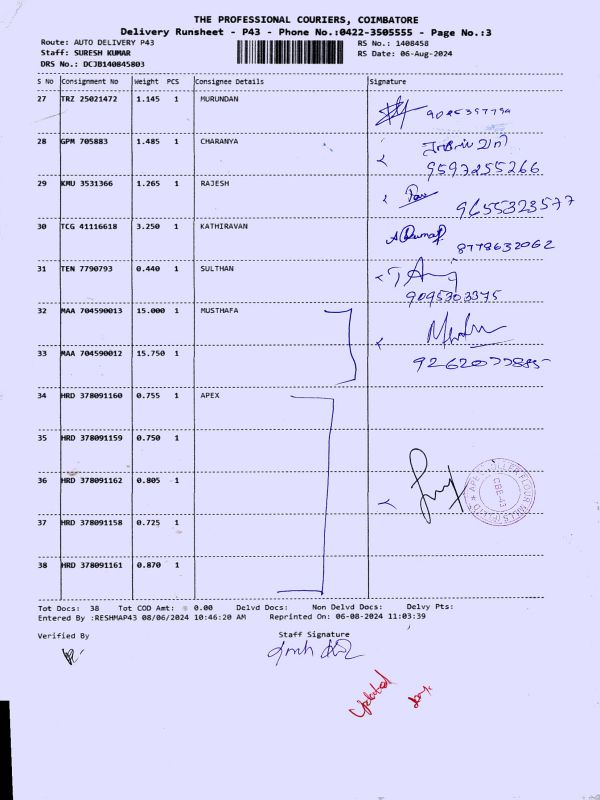 THE PROFESSIONAL COURIERS, COIMBATORE
Delivery Runsheet - P43 - Phone No.:0422-3505555 - Page No.:3
Route: AUTO DELIVERY P43 RS No.: 1408458
Staff: SURESH KUMAR RS Date: 06-Aug-2024
DRS No.: DCJB140845803
S No Consignment No Weight PCS Consignee Details Signature
27 TRZ 25021472 1.145 1 MURUNDAN
28 GPM 705883 1.485 1 CHARANYA
9597255266
29 KMU 3531366 1.265 1 RAJESH
9655323577
30 TCG 41116618 3.250 1 KATHIRAVAN
8778632062
31 TEN 7790793 0.440 1 SULTHAN
9095303375
32 MAA 704590013 15.000 1 MUSTHAFA
33 MAA 704590012 15.750 1
34 HRD 378091160 0.755 1 APEX
35 HRD 378091159 0.750 1
36 HRD 378091162 0.805 1
CBE-43
37 HRD 378091158 0.725 1
38 HRD 378091161 0.870 1
Tot Docs: 38 Tot COD Amt: 0.00 Delvd Docs: Non Delvd Docs: Delvy Pts:
Entered By :RESHMAP43 08/06/2024 10:46:20 AM Reprinted On: 06-08-2024 11:03:39
Verified By Staff Signature
Updated